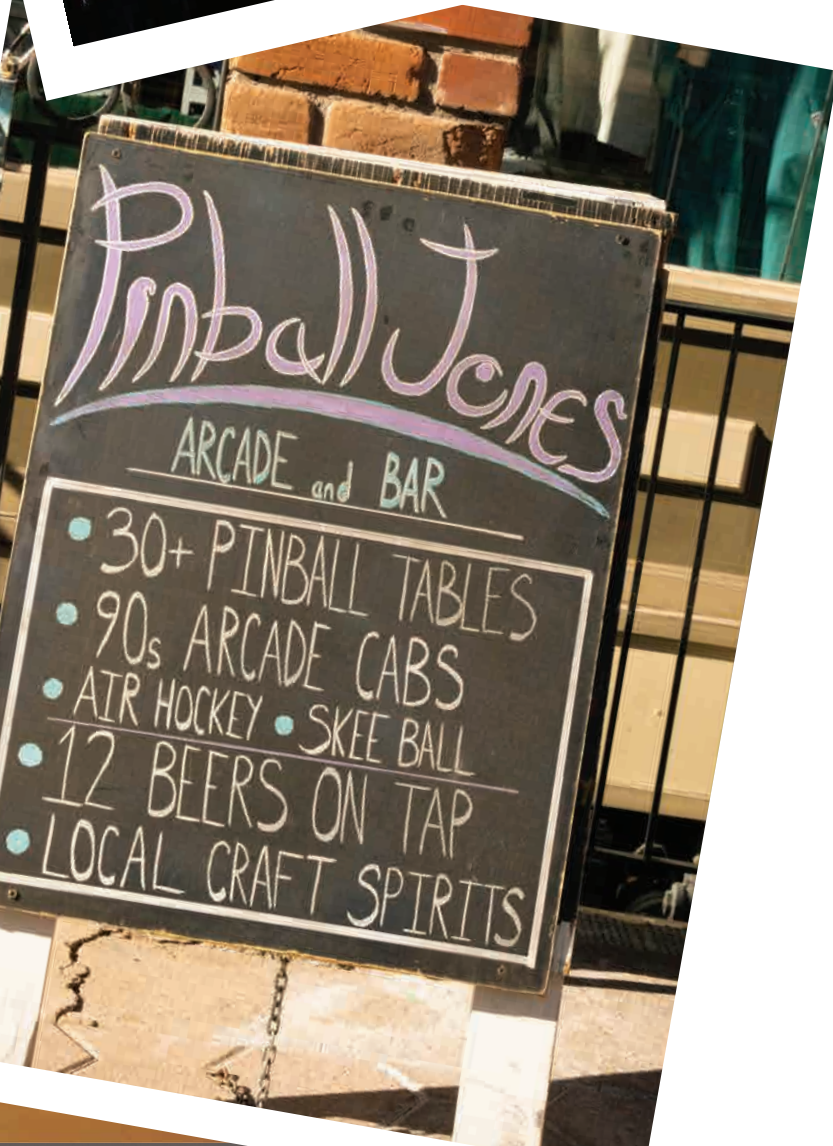 Pinball Jones
ARCADE and BAR
• 30+ PINBALL TABLES
• 90s ARCADE CABS
• AIR HOCKEY • SKEE BALL
• 12 BEERS ON TAP
• LOCAL CRAFT SPIRITS